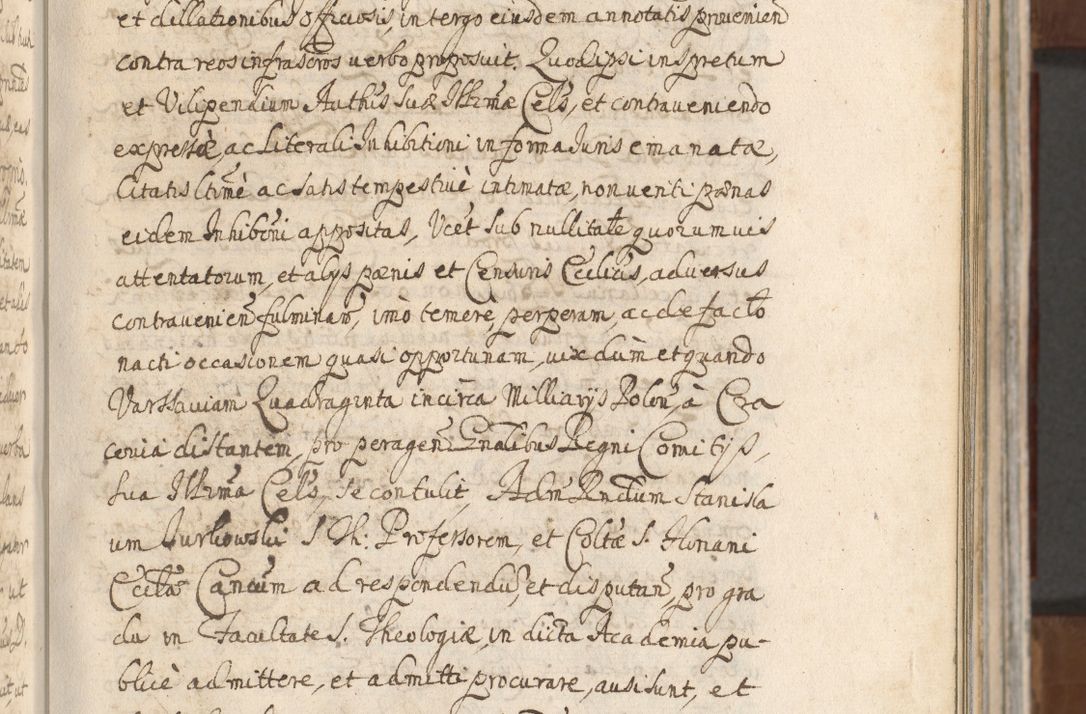 et dillationibus officiosis, in tergo eiusdem annotatis provenien
contra reos infrascr̃os verbo proposuit. Quod ipsi in spretum
et Vilipendium Auth̃is Suæ Illr̃mæ Cels̃, et contraveniendo
expressè, ac Literali Inhibitioni in forma Iuris emanatæ,
Citatis ltimè ac satis tempestivè intimatæ, non veriti pænas
eidem Inhibõni appositas, Vcet sub nullitate quorumvis
attentatorum, et alijs pænis et Censuris Ecclicis, adversus
contravenien fulminañ, imò temere, perperam, ac de facto
nacti occasionem quasi opportunam, vix dum et quando
Varssaviam Quadraginta incirca Milliarijs Polon, à Cra
covia distantem, pro peragen Gnalibus Regni Comitijs,
Sua Illr̃ma Cels̃, se contulit, Adm Rndum Stanisla
um Iurkowski S. Th: Professorem, et Coltæ S. Floriani
Ecclæ Canĉum ad respondendũ, et disputañ, pro gra
du in Facultate S. Theologiæ, in dicta Academia pu-
blicè admittere, et admitti procurare, ausi sunt, et